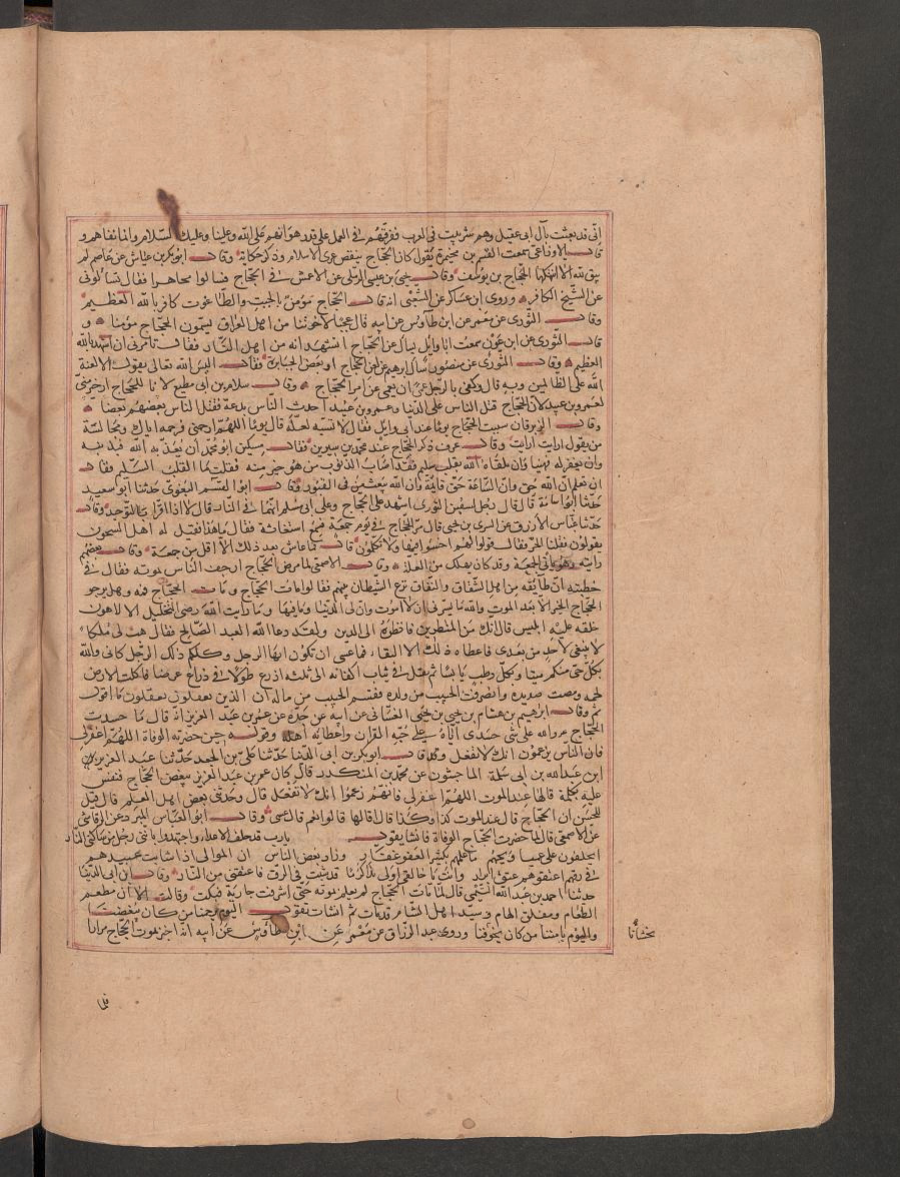 اني قد بعثت بآل ابى عقيل وهم شر بيت في العرب ففرقهم في العمل على قدر هوانهم على الله وعلينا وعليك السلام وانما نفاهم و
قال الاوزاعى سمعت القسم بن مخيمرة يقول كان الحجاج ينقض عرى الاسلام وذكر حكاية وقال ابو بكر بن عياش عن عاصم لم
يبق لله الا انتهكها الحجاج بن يوسف وقال يحيى بن عيسى الرملى عن الاعمش في الحجاج فسالوا مجاهدا فقال تسالونى
عن الشيخ الكافر وروى ابن عساكر عن الشعبى انه قال الحجاج مؤمن بالجبت والطاغوت كافر بالله العظيم
وقال الثورى عن معمر عن ابن طاوس عن ابيه قال عجبا لاخوتنا من اهل العراق يسمون الحجاج مؤمنا و
قال الثورى عن ابن عون سمعت ابا وايل يسال عن الحجاج اتشهد انه من اهل النار فقال تامرنى ان اشهد بالله
العظيم وقال الثورى عن منصور سال ابرهيم عن الحجاج او بعض الجبابرة فقال اليس الله تعالى يقول الا لعنة
الله على الظالمين وبه قال وكفى بالرجل عمى ان يعمى عن امر الحجاج وقال سلام بن ابى مطيع لانا للحجاج ارجى منى
لعمرو بن عبيد لان الحجاج قتل الناس على الدنيا وعمرو بن عبيد احدث الناس بدعة فقتل الناس بعضهم بعضا
وقال الزبرقان سببت الحجاج يوما عند ابى وايل فقال لا تسبه لعله قال يوما اللهم ارحمنى فرحمه اياك ومجالسة
من يقول ارايت ارايت وقال عوف ذكر الحجاج عند محمد بن سيرين فقال مسكين ابو محمد ان يعذبه الله فبذنبه
وان يغفر له فهنيا وان يلقاه الله بقلب سليم فقد اصاب الذنوب من هو خير منه فقلت ما القلب السليم فقال
ان تعلم ان الله حق وان الساعة حق قايمة وان الله يبعث من في القبور وقال ابو القسم البغوى حدثنا ابو سعيد
حدثنا ابو اسامة قال قال رجل لسفين الثورى اشهد على الحجاج وعلى ابى مسلم انهما في النار قال لا اذا اقرا بالتوحيد وقال
حدثنا عباس الازرق عن السرى بن يحيى قال مر الحجاج في يوم جمعة فسمع استغاثة فقال ما هذا فقيل له اهل السجون
يقولون قتلنا الحر فقال قولوا لهم اخسوا فيها ولا تكلمون قال فما عاش بعد ذلك الا اقل من جمعة وقال بعضهم
رايته وهو ياتى الجمعة وقد كان يهلك من العلة وقال الاصمعى لما مرض الحجاج ارجف الناس بموته فقال في
خطبته ان طايفه من اهل الشقاق والنفاق نزغ الشيطان بينهم فقالوا مات الحجاج ومات الحجاج فمه وهل يرجو
الحجاج الخير الا بعد الموت والله ما يسرنى ان لا اموت وان لى الدنيا وما فيها وما رايت الله رضى التخليد الا لاهون
خلقه عليه ابليس قال انك من المنظرين فانظره الى يوم الدين ولقد دعا الله العبد الصالح فقال هب لى ملكا
لا ينبغى لاحد من بعدى فاعطاه ذلك الا البقاء فما عسى ان تكون ايها الرجل وكلكم ذلك الرجل كانى والله
بكل حى منكم ميتا وبكل رطب يابسا ثم نقل في ثياب اكفانه الى ثلثه اذرع طولا في ذراع عرضا فاكلت الارض
لحمه ومصت صديده وانصرف الحبيب من ولده يقسم الحبيب من ماله ان الذين يعقلون يعقلون ما اقول
ثم وقال ابرهيم بن هشام بن يحيى بن يحيى الغسانى عن ابيه عن جده عن عمر بن عبد العزيز انه قال ما حسدت
الحجاج عدو الله على شى حسدى اياه على حبه القران واعطائه اهله وقوله حين حضرته الوفاة اللهم اغفر لى
فان الناس يزعمون انك لا تفعل وقال ابو بكر بن ابى الدنيا حدثنا على بن الجعد حدثنا عبد العزيز
ابن عبد الله بن ابى سلمة الماجشون عن محمد بن المنكدر قال كان عمر بن عبد العزيز يبغض الحجاج فنفس
عليه بكلمة قالها عند الموت اللهم اغفر لى فانهم زعموا انك لا تفعل قال وحدثنى بعض اهل العلم قال قيل
للحسن ان الحجاج قال عند الموت كذا وكذا قال اقالها قالوا نعم قال عسى وقال ابو العباس المبرد عن الرقاشى
عن الاصمعى قال لما حضرت الحجاج الوفاة انشا يقول يا رب قد حلف الاعداء واجتهدوا بانى رجل من ساكنى النار
ايحلفون على عمياء ويحهم ما علمهم بكثير العفو غفار وزاد بعض الناس ان الموالى اذا شابت عبيدهم
في رقهم اعتقوهم عتق ابرار وانت يا خالقى اولى بذا كرما قد شبت في الرق فاعتقنى من النار وقال ابن ابى الدنيا
حدثنا احمد بن عبد الله التيمى قال لما مات الحجاج لم يعلم بموته حتى اشرفت جارية فبكت وقالت الا ان مطعم
الطعام ومفلق الهام وسيد اهل الشام قد مات ثم انشات تقول اليوم يرحمنا من كان يبغضنا
واليوم يامننا من كان يخوفنا وروى عبد الرزاق عن معمر عن ابن طاوس عن ابيه انه اخبر بموت الحجاج مرارا
يخشانا
فلما